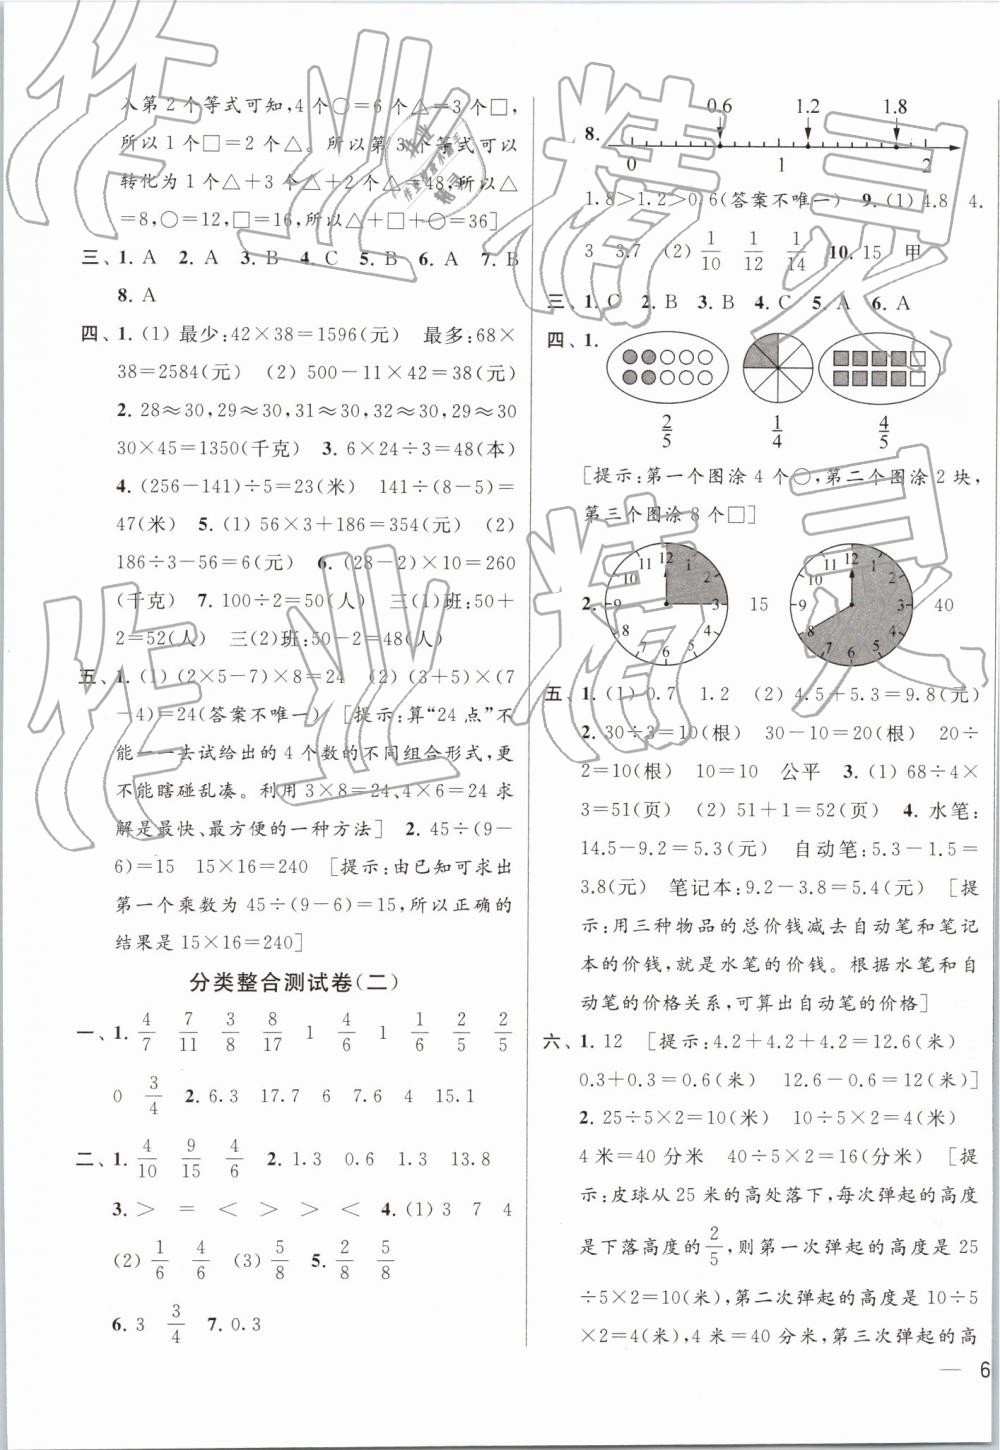 入第 2 个等式可知,4 个○=6 个△=3 个□,
所以 1 个□=2 个△。所以第 3 个等式可以
转化为 1 个△+3 个△+2 个△=48,所以△
=8,○=12,□=16,所以△+□+○=36]
三、1. A 2. A 3. B 4. C 5. B 6. A 7. B
8. A
四、1. (1) 最少:42×38=1596(元) 最多:68×
38=2584(元) (2) 500-11×42=38(元)
2. 28≈30,29≈30,31≈30,32≈30,29≈30
30×45=1350(千克) 3. 6×24÷3=48(本)
4. (256-141)÷5=23(米) 141÷(8-5)=
47(米) 5. (1) 56×3+186=354(元) (2)
186÷3-56=6(元) 6. (28-2)×10=260
(千克) 7. 100÷2=50(人) 三(1)班:50+
2=52(人) 三(2)班:50-2=48(人)
五、1. (1) (2×5-7)×8=24 (2) (3+5)×(7
-4)=24(答案不唯一) [提示:算“24 点”不
能一一去试给出的 4 个数的不同组合形式,更
不能瞎碰乱凑。利用 3×8=24、4×6=24 求
解是最快、最方便的一种方法] 2. 45÷(9-
6)=15 15×16=240 [提示:由已知可求出
第一个乘数为 45÷(9-6)=15,所以正确的
结果是 15×16=240]
分类整合测试卷(二)
一、1. 4/7 7/11 3/8 8/17 1 4/6 1 1/6 2/5 2/5
0 3/4 2. 6.3 17.7 6 7.6 4 15.1
二、1. 4/10 9/15 4/6 2. 1.3 0.6 1.3 13.8
3. > = < > > < 4. (1) 3 7 4
(2) 1/6 4/6 (3) 5/8 5. 2/8 5/8
6. 3 3/4 7. 0.3
0.6 1.2 1.8
8. 0 1 2
1.8>1.2>0.6(答案不唯一) 9. (1) 4.8 4.
3 3.7 (2) 1/10 1/12 1/14 10. 15 甲
三、1. C 2. B 3. B 4. C 5. A 6. A
四、1.
2/5 1/4 4/5
[提示:第一个图涂 4 个○,第二个图涂 2 块,
第三个图涂 8 个□]
2. 12 1 2 3 4 5 6 7 8 9 10 11 15 12 1 2 3 4 5 6 7 8 9 10 11 40
五、1. (1) 0.7 1.2 (2) 4.5+5.3=9.8(元)
2. 30÷3=10(根) 30-10=20(根) 20÷
2=10(根) 10=10 公平 3. (1) 68÷4×
3=51(页) (2) 51+1=52(页) 4. 水笔:
14.5-9.2=5.3(元) 自动笔:5.3-1.5=
3.8(元) 笔记本:9.2-3.8=5.4(元) [提
示:用三种物品的总价钱减去自动笔和笔记
本的价钱,就是水笔的价钱。根据水笔和自
动笔的价格关系,可算出自动笔的价格]
六、1. 12 [提示:4.2+4.2+4.2=12.6(米)
0.3+0.3=0.6(米) 12.6-0.6=12(米)]
2. 25÷5×2=10(米) 10÷5×2=4(米)
4 米=40 分米 40÷5×2=16(分米) [提
示:皮球从 25 米的高处落下,每次弹起的高度
是下落高度的2/5,则第一次弹起的高度是 25
÷5×2=10(米),第二次弹起的高度是 10÷5
×2=4(米),4 米=40 分米,第三次弹起的高
— 6
作业精灵
作业精灵